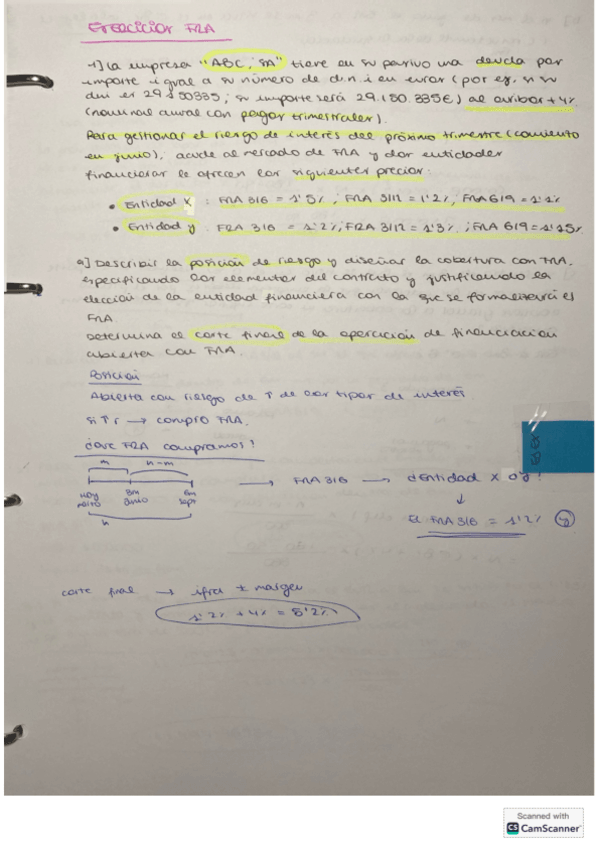 EJERCICIOS FRA
1] La empresa "ABC, SA" tiene en su pasivo una deuda por
importe igual a su número de d.n.i en euros (por ej, si su
dni es 29150335, su importe será 29.150.335€) al euribor + 4%
(nominal anual con pagos trimestrales).
Para gestionar el riesgo de interés del próximo trimestre (comienzo
en junio), acude al mercado de FRA y dos entidades
financieras le ofrecen los siguientes precios:
• Entidad X : FRA 3/6 = 1'5% ; FRA 3/12 = 1'2% ; FRA 6/9 = 1'1%
• Entidad y : FRA 3/6 = 1'2% ; FRA 3/12 = 1'3% ; FRA 6/9 = 1'15%
a] Describir la posición de riesgo y diseñar la cobertura con FRA,
especificando los elementos del contrato y justificando la
elección de la entidad financiera con la que se formalizará el
FRA.
Determina el coste final de la operación de financiación
abierta con FRA.
Posición
Abierta con riesgo de ↑ de los tipos de interés
Si ↑r → compro FRA.
¿Qué FRA compramos?
m n-m
→ FRA 3/6 → ¿Entidad X o y?
Hoy 3m 6m
junio sept
n
↓
El FRA 3/6 = 1'2% (y)
coste final → ifra ± margen
1'2% + 4% = 5'2%
Scanned with
CS CamScanner